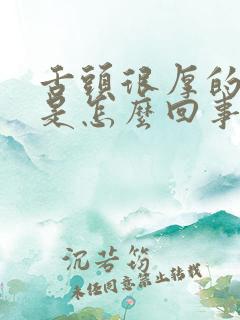 舌頭很厚的
是怎麼回事
沉若筠
未经同意禁止转载